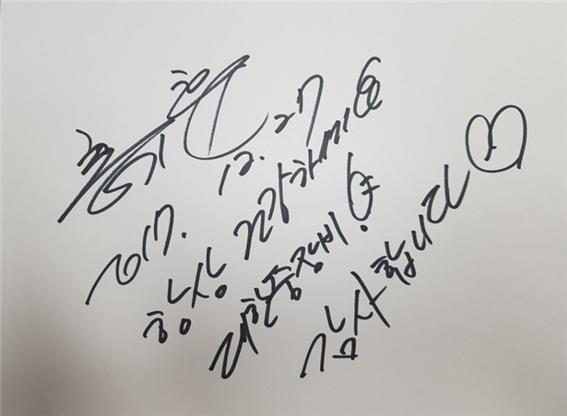 2017. 12. 27
항상 건강하세요
대한중장비!
감사합니다 ♡